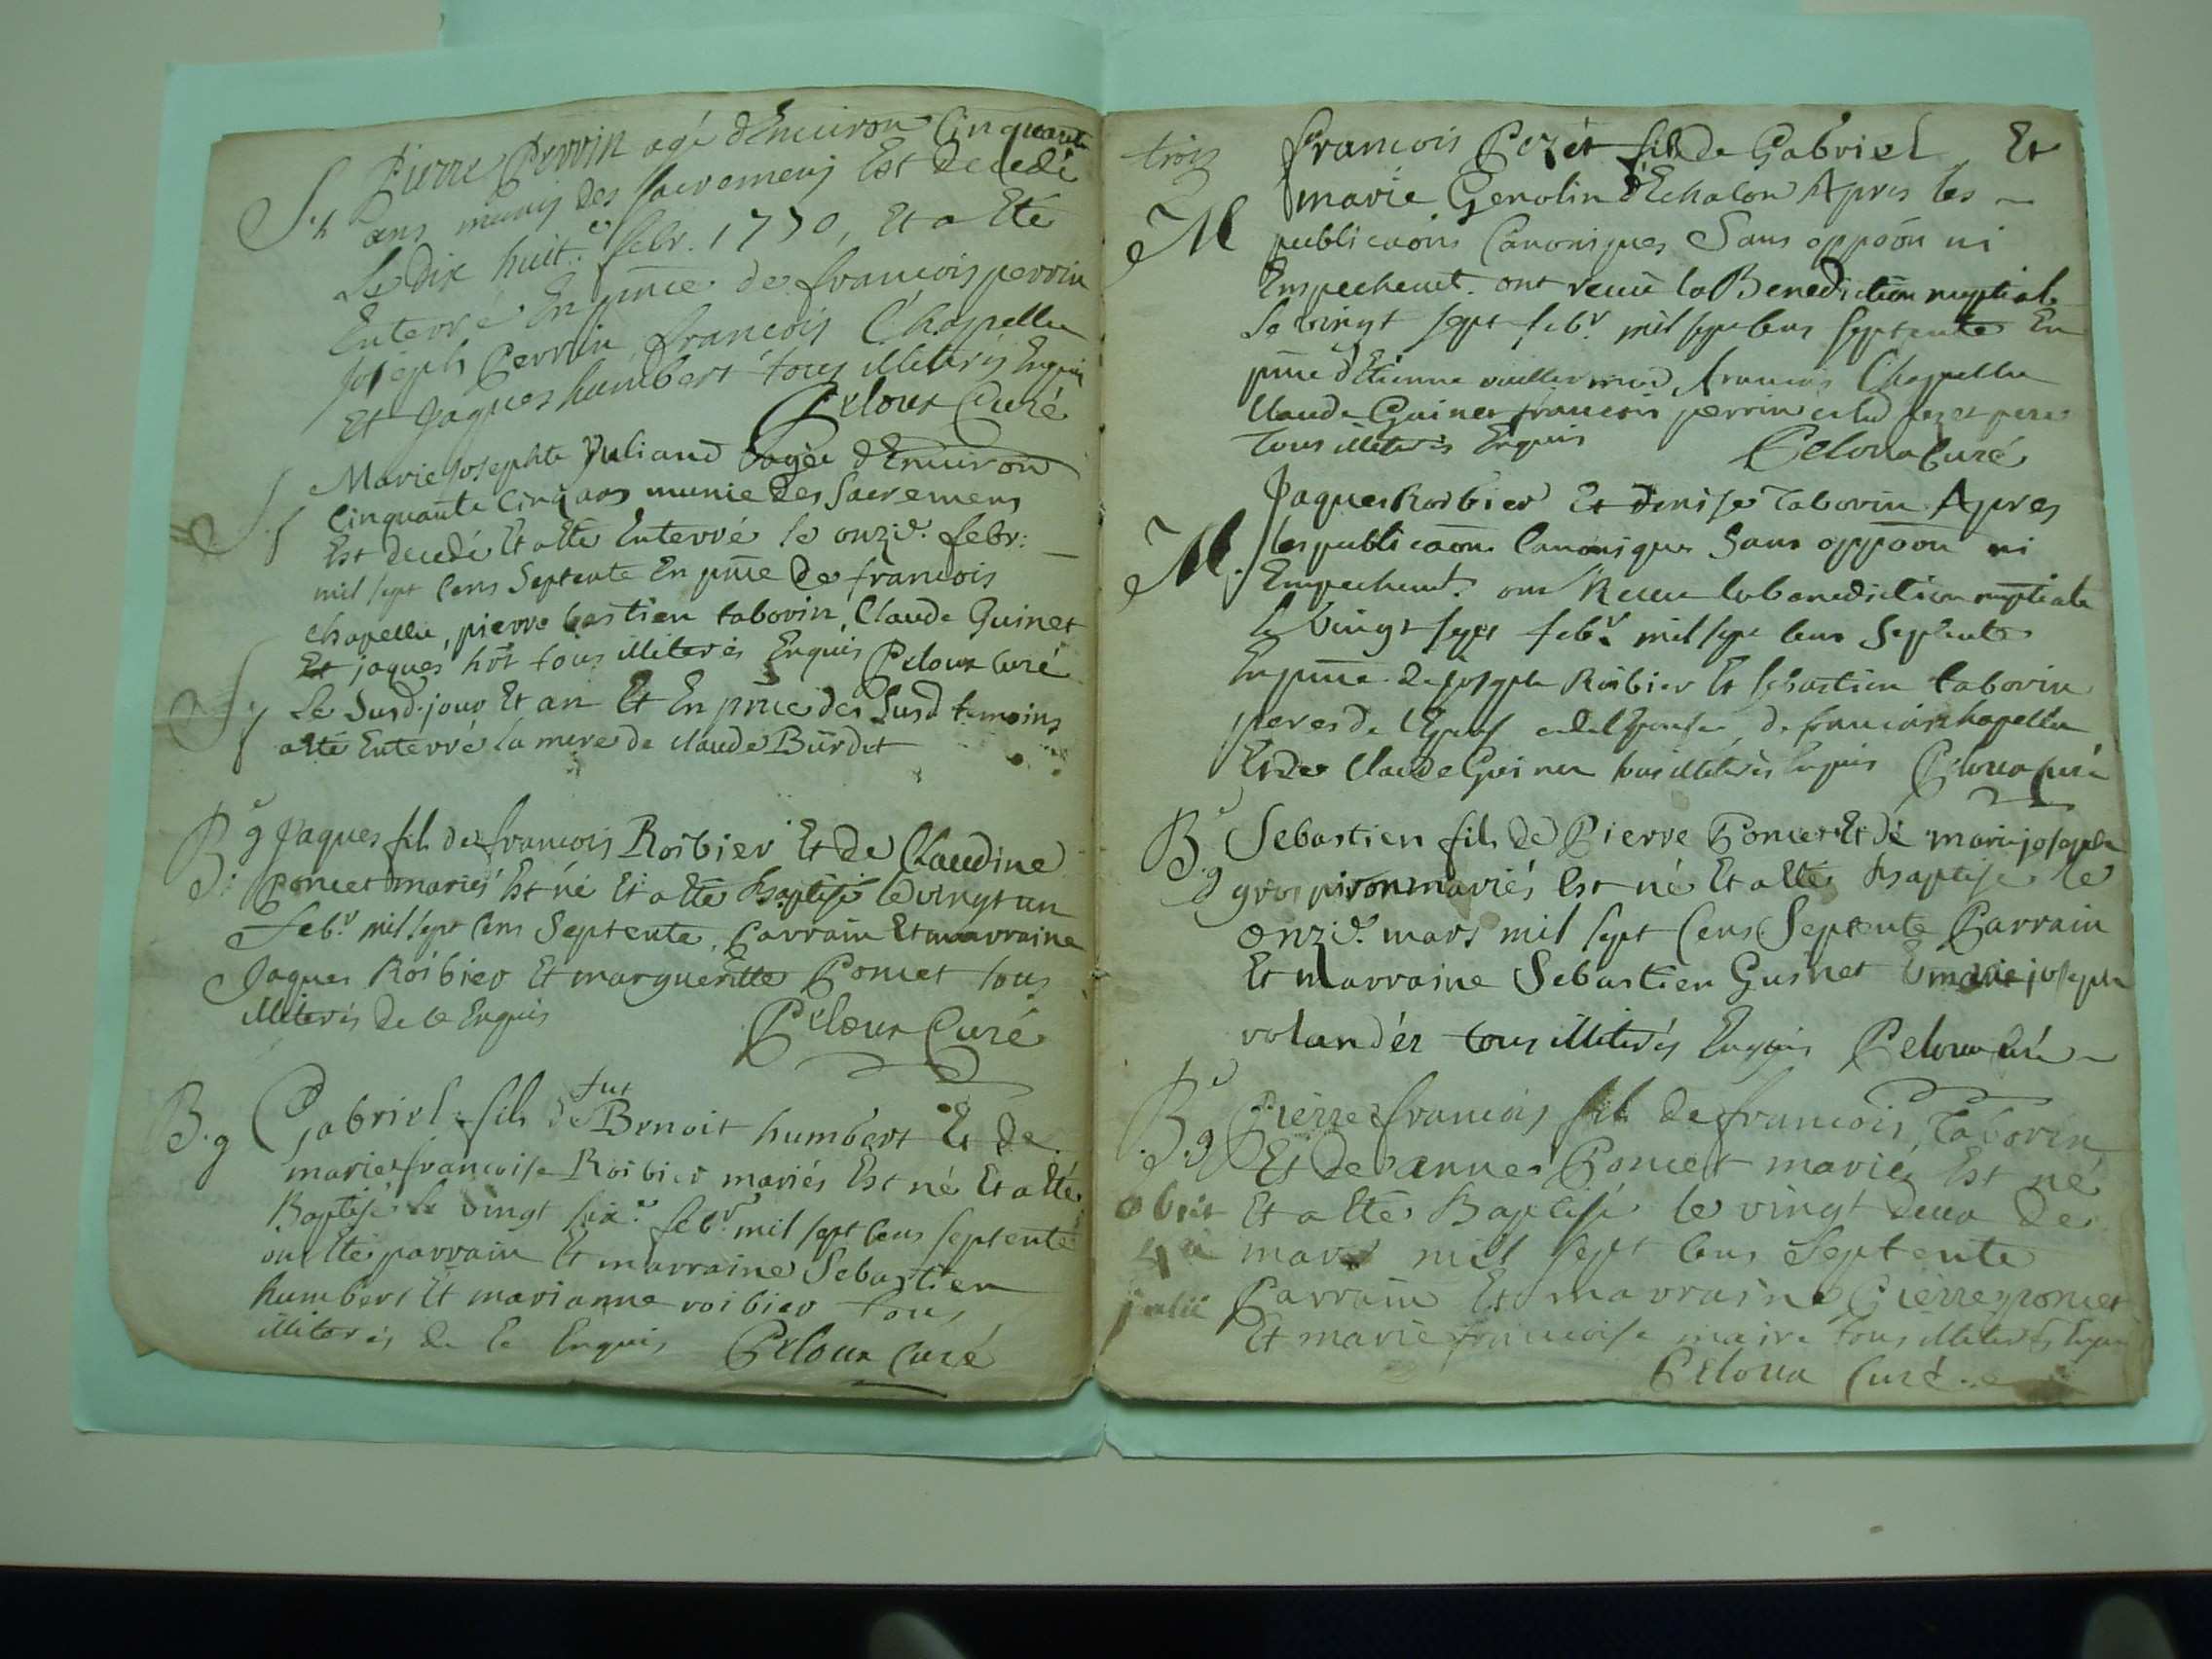 Pierre Perrin agé d'Environ Cinquante
S.h ans munis des sacremens Est decedé
Le dix huit.e febr. 1770, Et a Eté
Enterré En pnce de francois perrin
Joseph Perrin francois Chappellu
Et Jaques humbert tous illiterés Enquis
Peloux Curé
Marie Josephte Juliand agée d'Environ
S.f Cinquante Cinq ans munie des sacremens
Est decedé Et a Eté Enterré le onzie. febr:
mil sept Cens Septente En pnce de francois
chapellu, pierre bastien taborin, Claude Guinet
Et jaques hbt tous illiterés Enquis Peloux curé
S.f Le Susd. jour Et an Et En pnce des Susd temoins
a Eté Enterré la mere de claude Burdet
B.e g Jaques fils de francois Roibier Et de Claudine
Poncet mariés Est né Et a Eté Baptisé le vingt un
feb.r mil sept Cens Septente, Parrain Et marraine
Jaques Roibier Et margueritte Poncet tous
illiterés de ce Enquis
Peloux Curé
B.g Gabriel fils de fut Benoit humbert Et de
marie francoise Roibier mariés Est né Et a Eté
Baptisé le vingt six.e feb.r mil sept cens septente
ont Eté parrain Et marraine Sebastien
humbert Et marianne roibier tous
illiterés de ce Enquis Peloux Curé
trois francois Pezét fils de Gabriel Et
marie Genolin d'Echalon Apres les
M publicaons Canoniques Sans oppoon ni
Empechemt. ont recüe la Benediction nuptiale
le vingt sept feb.r mil sept cens septente En
pnce d'Etienne vuillermoz, francois Chappellu
Claude Guinet francois perrin pezet pere
Tous illiterés Enquis Peloux Curé
Jaques Roibier Et denise Taborin Apres
M. les publicaons Canoniques Sans oppoon ni
Empechemt. ont Recue la benediction nuptiale
le vingt sept feb.r mil sept cens Septente
En pnce de joseph Roibier Et sebastien taborin
peres de l'Epoux et de l'Epouse, de francois chapellu
Et de Claude Guinet tous illiterés Enquis Peloux curé
B.e g Sebastien fils de Pierre Poncet Et dé marie josephe
grospiron mariés Est né Et a Eté Baptisé le
onzie. mars mil sept Cens Septente Parrain
Et Marraine Sebastien Guinet Et marie josephe
volandér tous illiterés Enquis Peloux curé
B.e g Pierre francois fils de francois Taborin
Et de anne Poncet mariés Est né
obiit Et a Eté Baptisé le vingt deux de
mars mil sept cens Septente
julii Parrain Et marraine Pierre poncet
Et marie francoise maire tous illiterés Enquis
Peloux Curé